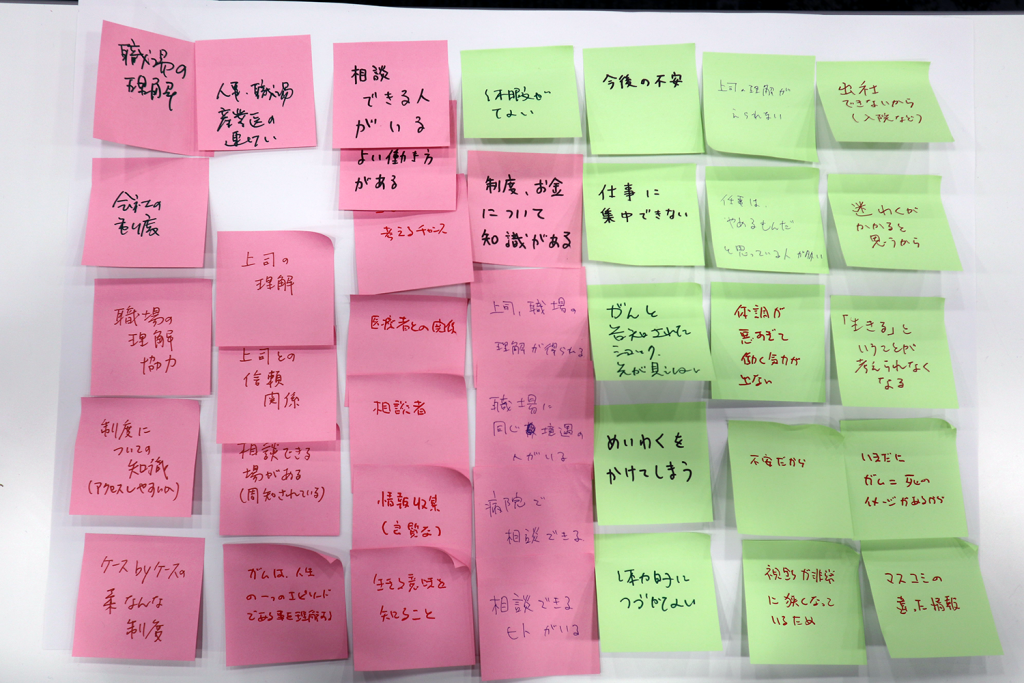 職場の
理解
人事・職場
産業医の
連けい
相談
できる人
がいる
よい働き方
がある
考えるチャンス
体眼が
今後の不安
上司の理解が
えられない
出社
できないから
(入院など)
会社の
制度
制度、お金
について
知識がある
仕事に
集中できない
仕事は、
やめるもんだ
と思っている人が多い
迷わくが
かかると
思うから
上司の
理解
職場の
理解
協力
医療者との関係
上司、職場の
理解が得られる
がんと
告知されて
ショック、
先が見えない
体調が
悪すぎて
働く気力が
出ない
「生きる」と
いうことが
考えられなく
なる
上司との
信頼
関係
相談者
職場に
同じ境遇の
人がいる
制度に
ついての
知識
(アクセスしやすい)
相談できる
場がある
(周知されている)
情報収集
病院で
相談できる
めいわくを
かけてしまう
不安だから
いまだに
ガン=死の
イメージがあるから
ケースbyケースの
柔なんな
制度
ガンは、人生
の一つのエピソード
である事を理解する
生きる意味を
知ること
相談できる
ヒトがいる
体力的に
つづかない
視野が非常
に狭くなって
いるため
マスコミの
誤った情報